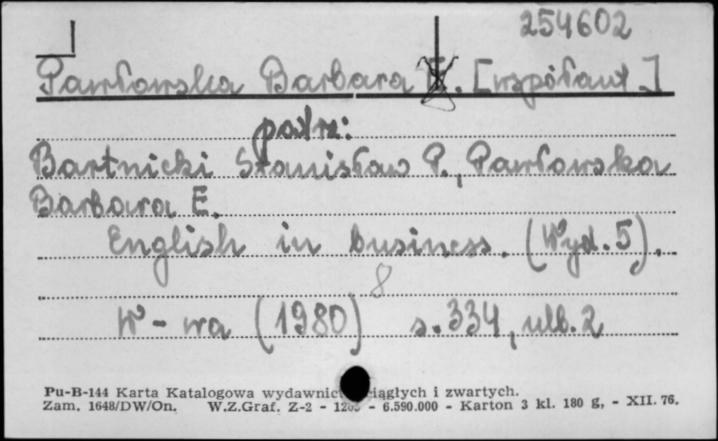 254602
Pawłowska Barbara E. [współaut.]
patrz:
Bartnicki Stanisław P., Pawłowska
Barbara E.
English in business. (Wyd. 5).
8
W-wa (1980) s. 334, nlb. 2
Pu-B-144 Karta Katalogowa wydawnict ciągłych i zwartych.
Zam. 1648/DW/On. W.Z.Graf. Z-2 - - 6.590.000 - Karton 3 kl. 180 g, - XII. 76.